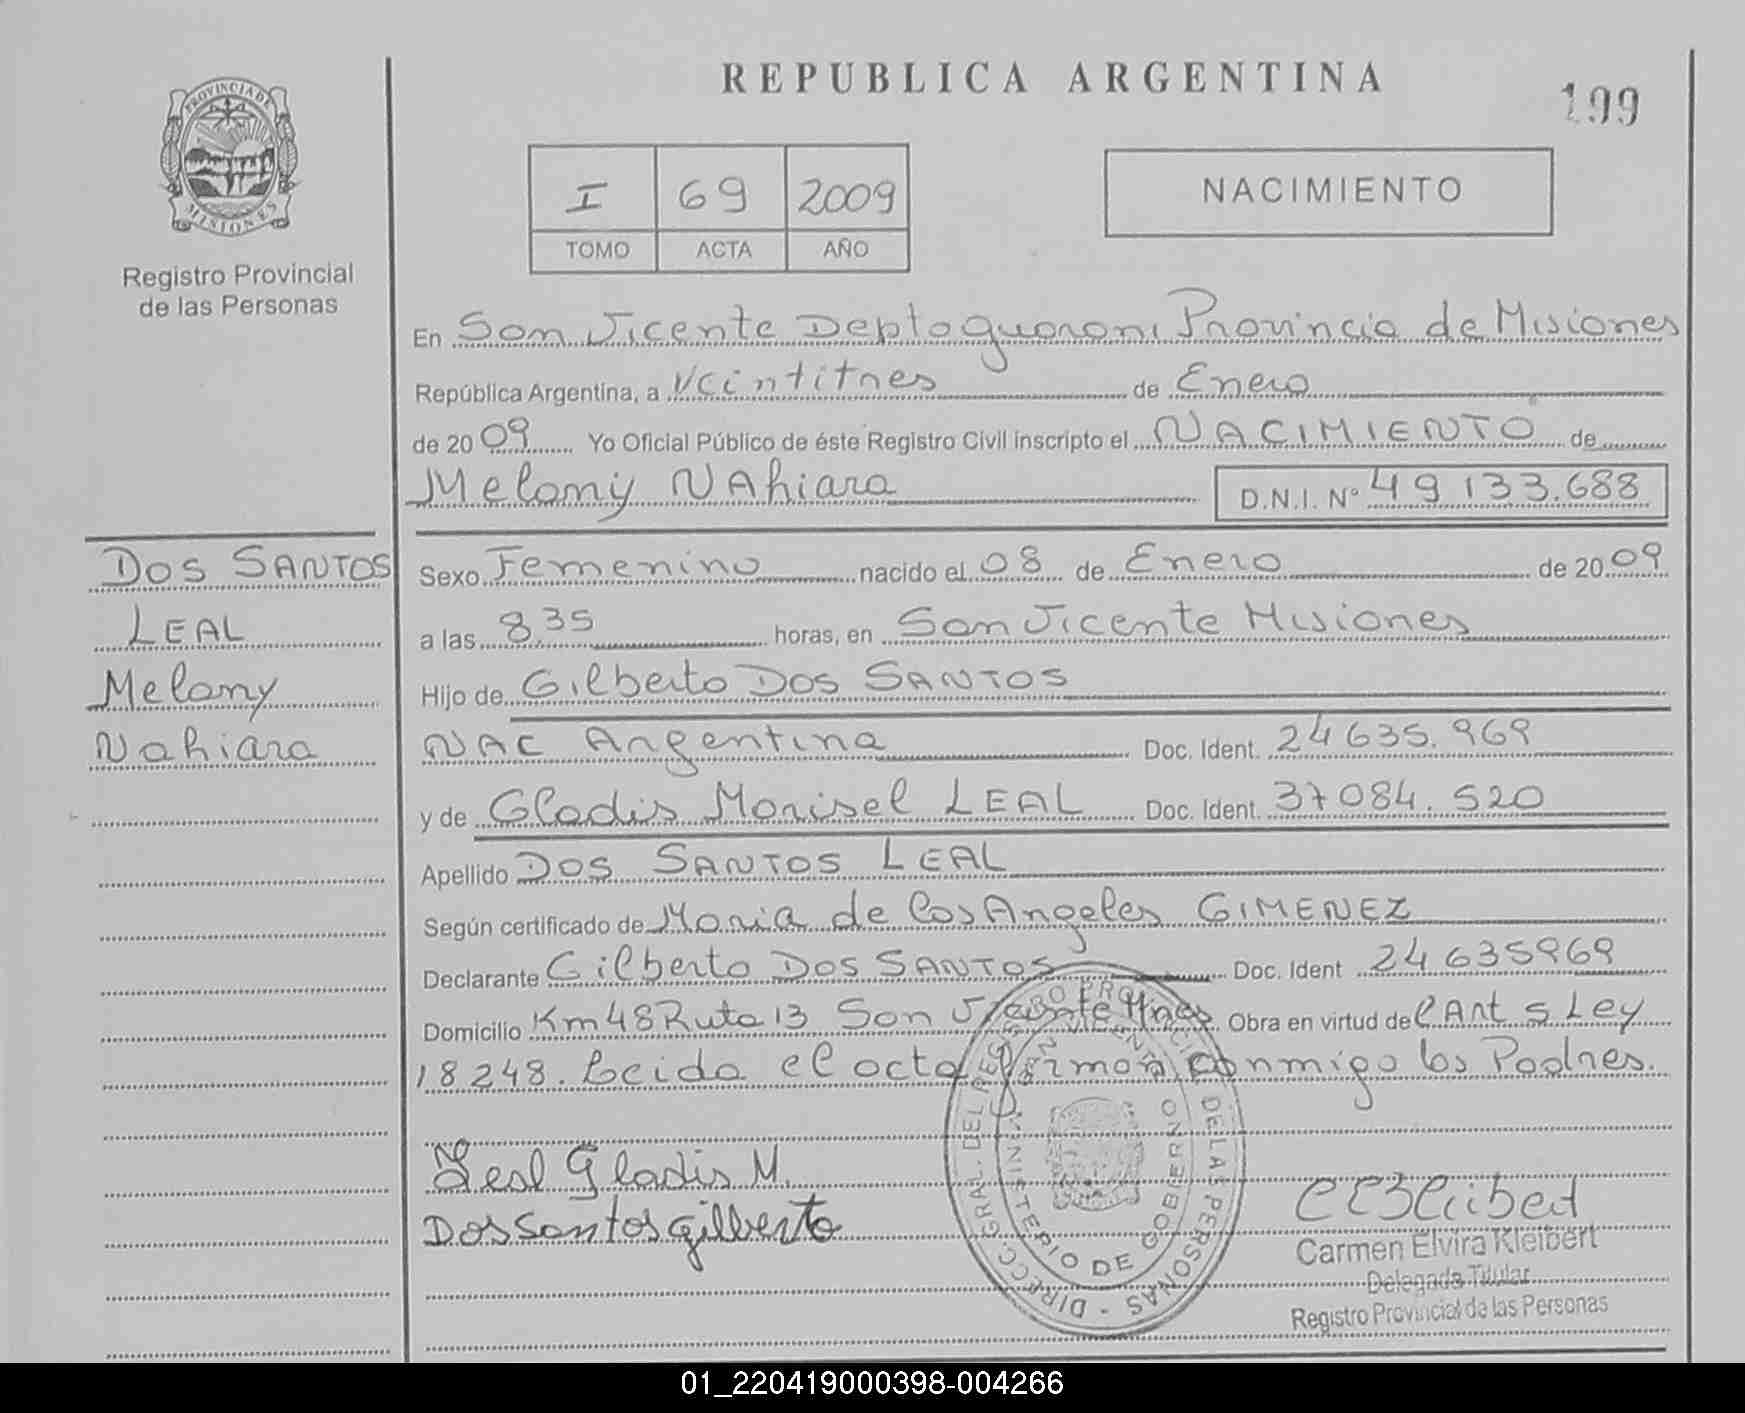 REPUBLICA ARGENTINA
199
PROVINCIA DE
MISIONES
Registro Provincial
de las Personas
I 69 2009
TOMO ACTA AÑO
NACIMIENTO
En San Vicente Depto guarani Provincia de Misiones
República Argentina, a Veintitres de Enero
de 2009 Yo Oficial Público de éste Registro Civil inscripto el NACIMIENTO de
Melany NAhiara D.N.I. Nº 49 133.688
DOS SANTOS
LEAL
Melany
Nahiara
Sexo Femenino nacido el 08 de Enero de 2009
a las 8,35 horas, en San Vicente Misiones
Hijo de Gilberto DOS SANTOS
NAC Argentina Doc. Ident. 24 635.969
y de Gladis Marisel LEAL Doc. Ident. 37 084.520
Apellido DOS SANTOS LEAL
Según certificado de Maria de los Angeles GIMENEZ
Declarante Gilberto DOS SANTOS Doc. Ident 24 635969
Domicilio Km 48 Ruta 13 San Vicente Mnes Obra en virtud del Art 5 Ley
18248. Leida el acta firman conmigo los Padres.
Leal Gladis M.
Dos Santos gilberto
DIRECC. GRAL. DEL REGISTRO PROVINCIAL DE LAS PERSONAS
SAN VICENTE
MINISTERIO DE GOBIERNO
Carmen Elvira Kleibert
Delegada Titular
Registro Provincial de las Personas
01_220419000398-004266